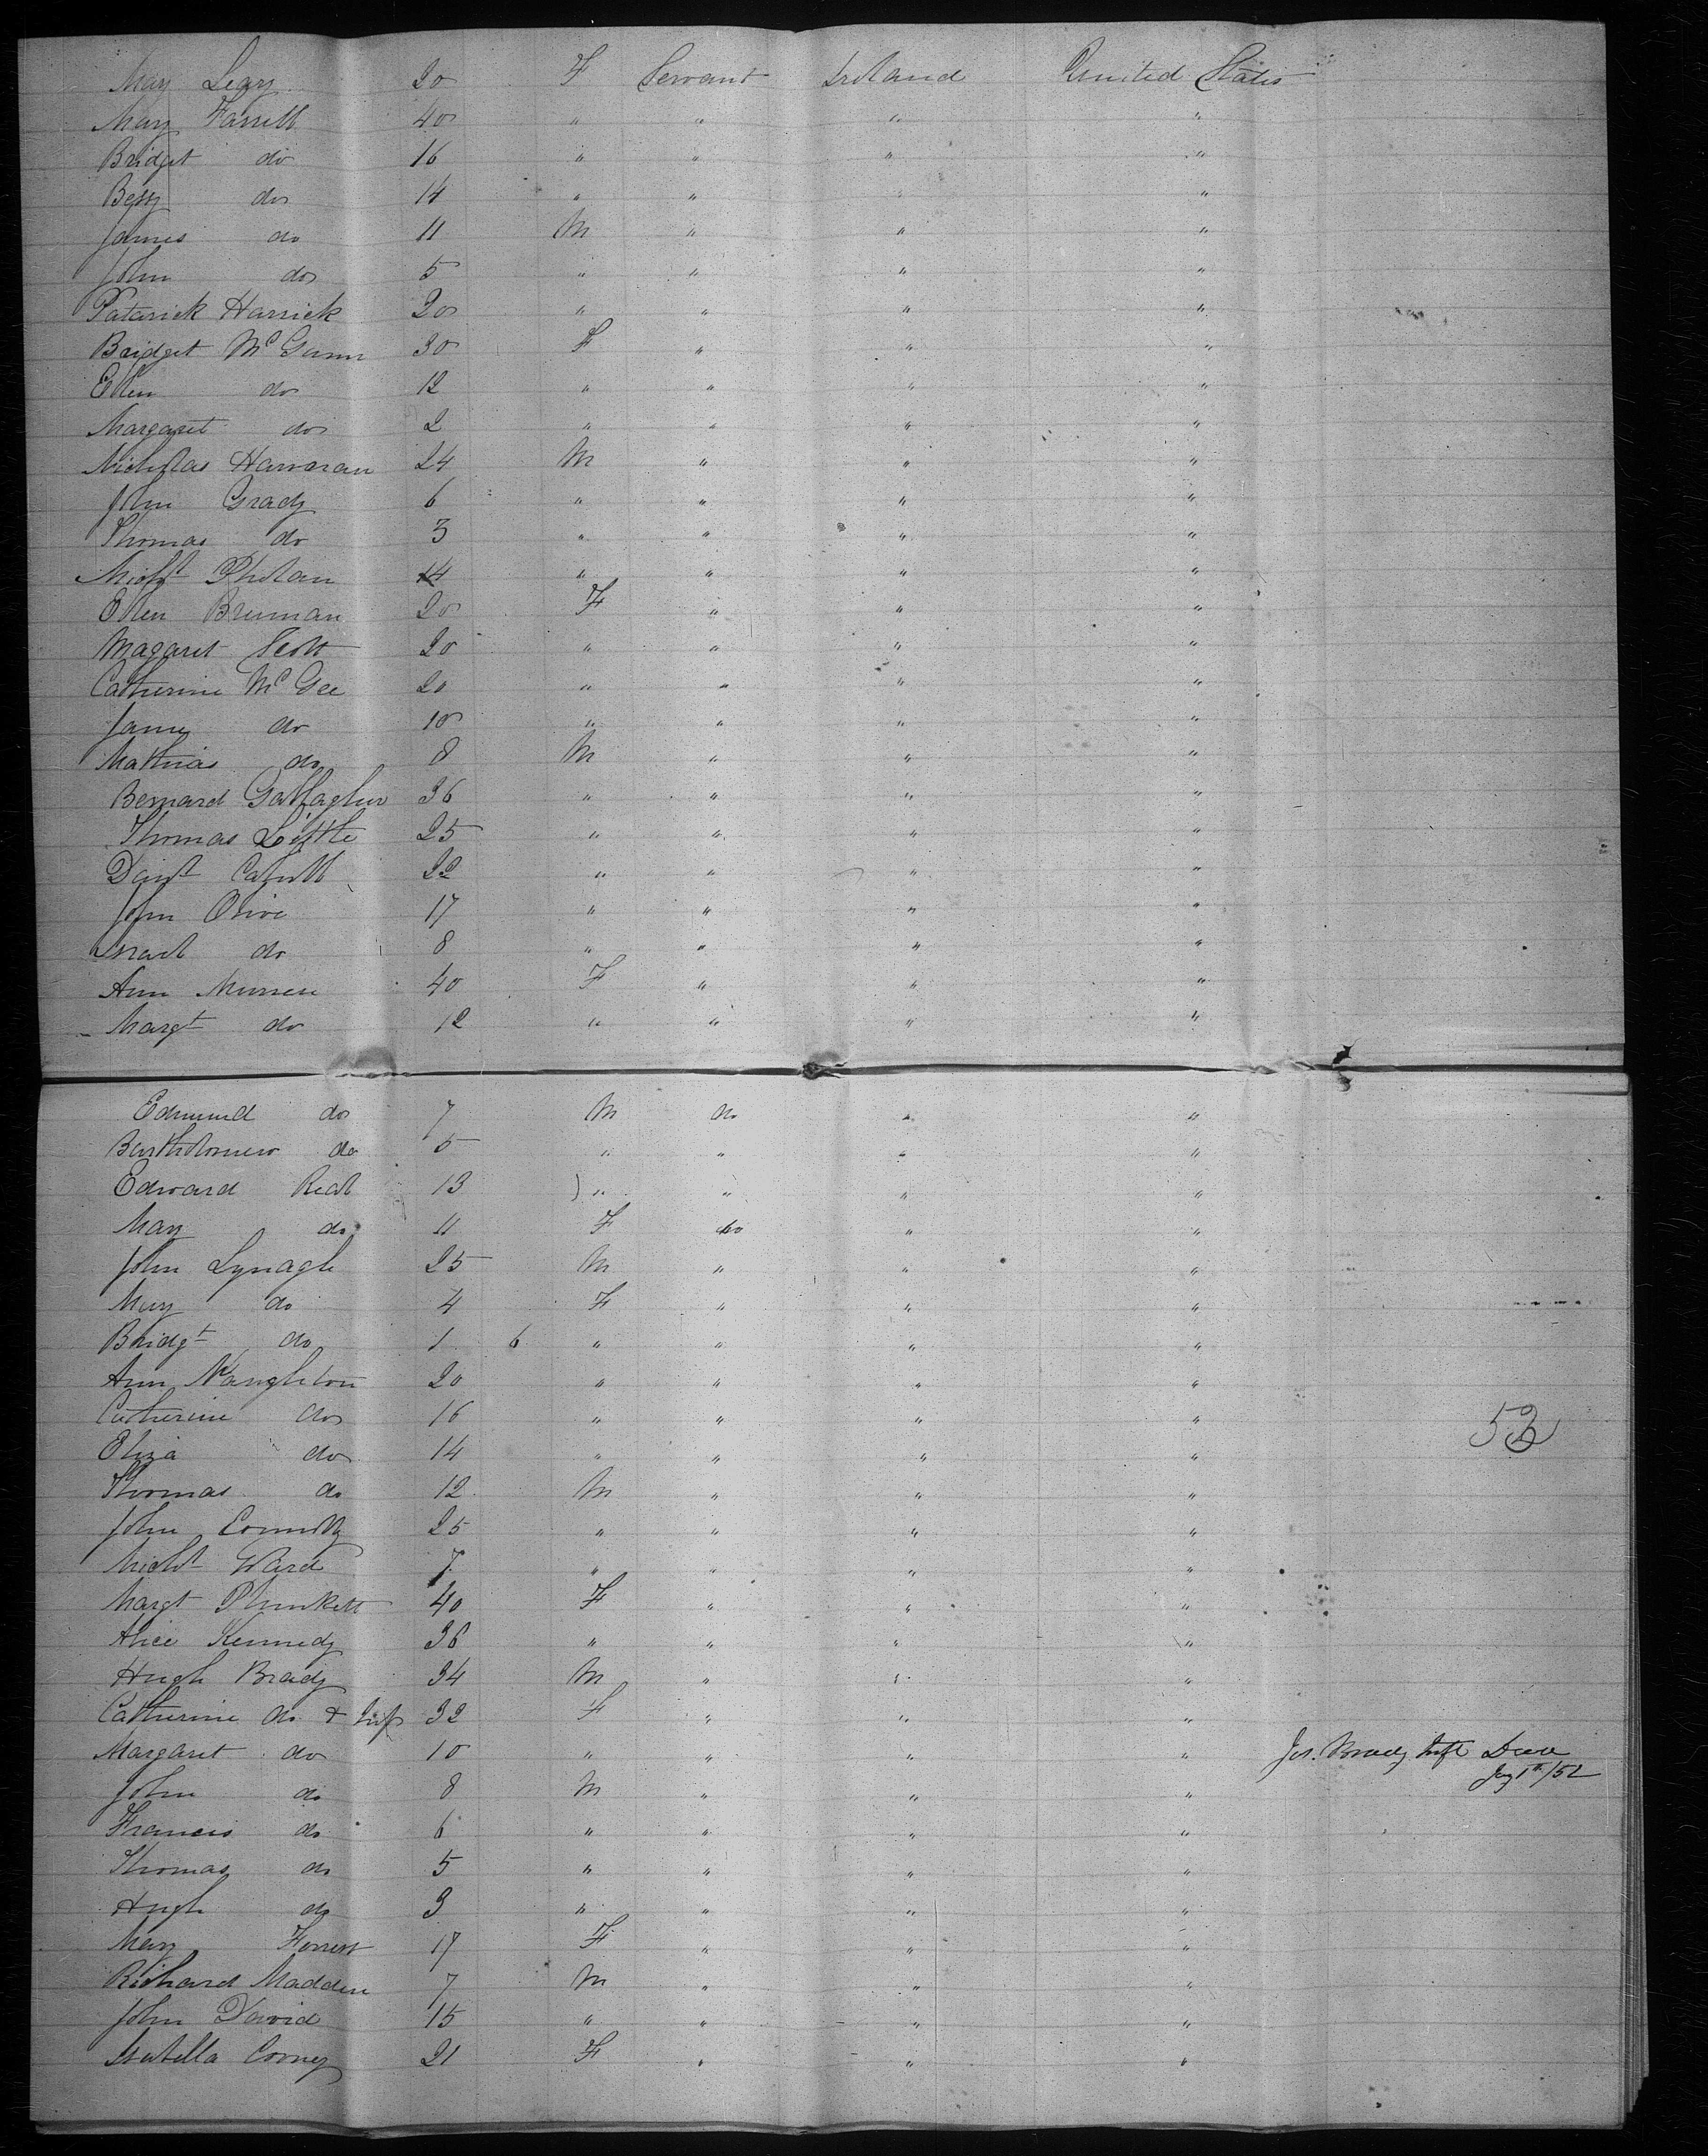 Mary Leary 20 F Servant Ireland United States
Mary Farrell 40 " " " "
Bridget do 16 " " " "
Bessy do 14 " " "
James do 11 M " " "
John do 5 " " " "
Patarick Harrick 20 " " " "
Bridget McGann 30 F " " "
Ellen do 12 " " " "
Margaret do 2 " " " "
Nicholas Hanonan 24 M " " "
John Grady 6 " " " "
Thomas do 3 " " " "
Michl Phelan 14 " " " "
Ellen Brennan 20 F " " "
Magaret Scott 20 " " " "
Catherine McGee 20 " " " "
Jane do 10 " " " "
Mathias do 8 M " " "
Bernard Gallagher 36 " " " "
Thomas Little 25 " " " "
22 " " " "
John Olive 17 " " " "
Israel do 8 " " " "
Ann Murren 40 F " " "
Margt do 12 " " " "
Edmund do 7 M do " "
Bartholomew do 5 " " " "
Edward Real 13 " " " "
Mary do 11 F do " "
John Lynagh 25 M " " "
Mary do 4 F " " "
Bridgt do 1 6 " " " "
Ann Naughton 20 " " " "
Catherine do 16 " " " "
53
Eliza do 14 " " " "
Thomas do 12 M " " "
John Connolly 25 " " " "
Michl Ward 7 " " " "
Margt Plunkett 40 F " " "
Alice Kennedy 36 " " " "
Hugh Brady 34 M " " "
Catherine do & Inf 32 F " " "
Margaret do 10 " " " " Jas. Brady Inft
John do 8 M " " " Jay 1st /52
Francis do 6 " " " "
Thomas do 5 " " " "
Hugh do 3 " " " "
Mary Forrest 17 F " " "
Richard Madden 7 M " " "
John David 15 " " " "
Isabella Corney 21 F " " "